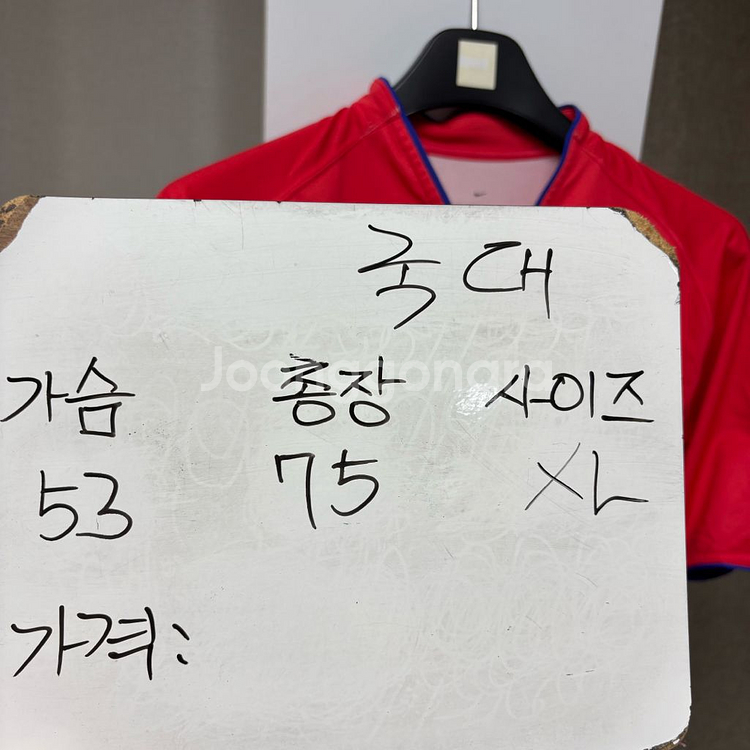 국대
가슴 총장 사이즈
Joonggonara
53 75 XL
가격: